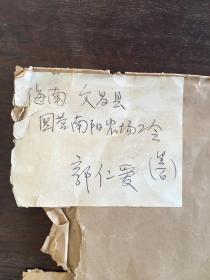 海南 文昌县
国营南阳农场工会
郭仁爱